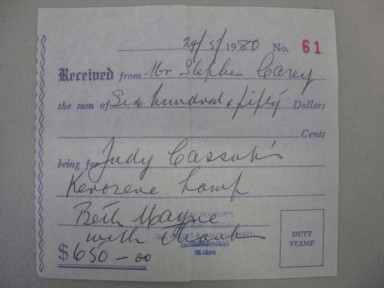 24/5/1980 No. 61
Received from Mr Stephen Carey
the sum of Six hundred & fifty Dollars
Cents
being for Judy Cassab's
Kerosene Lamp
Beth Mayne
with thanks
$650-00
DUTY
STAMP